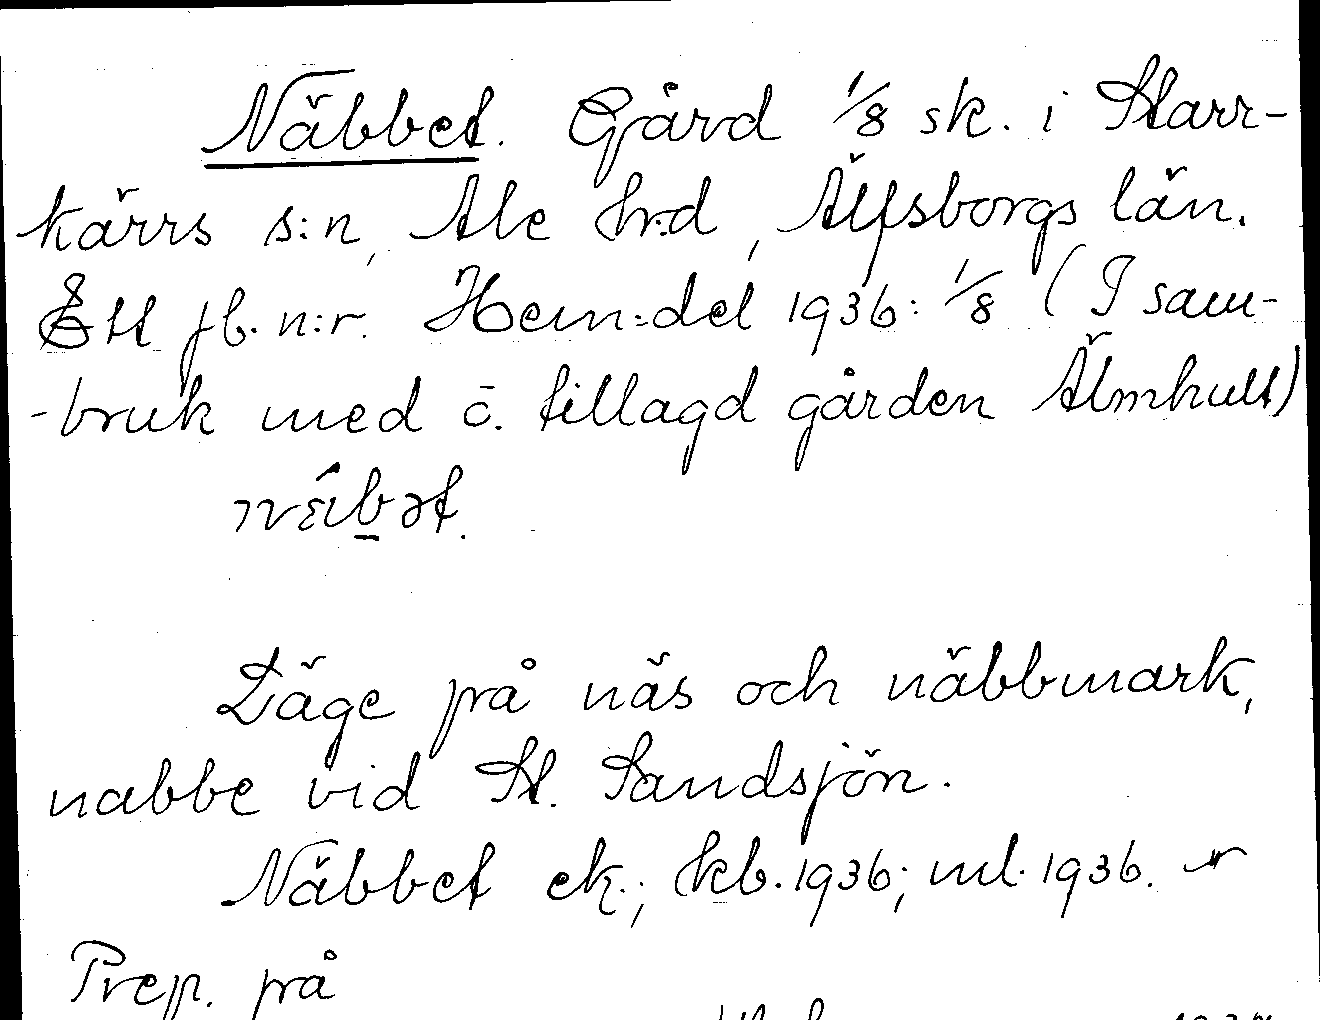 Näbbet. Gård 1/8 sk. i Starr-
kärrs s:n, Ale h:d, Älfsborgs län.
Ett jb. n:r. Hem:del 1936: 1/8 (I sam-
-bruk med ö. tillagd gården Älmhult)
Läge på näs och näbbmark,
nabbe vid St. Sandsjön.
Näbbet ek.; kb. 1936; ml. 1936.
Prep. på